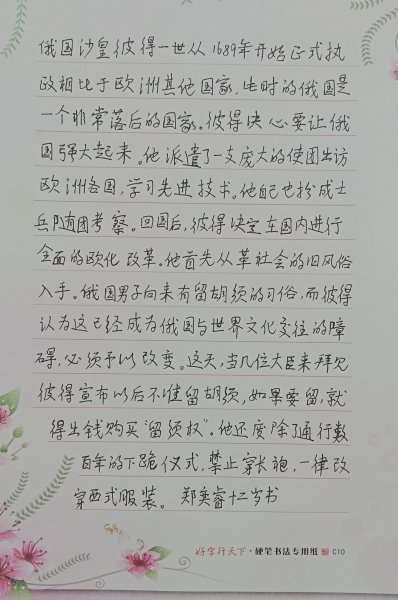 俄国沙皇彼得一世从1689年开始正式执
政相比于欧洲其他国家,此时的俄国是
一个非常落后的国家。彼得决心要让俄
国强大起来。他派遣了一支庞大的使团出访
欧洲各国,学习先进技术。他自己也扮成士
兵随团考察。回国后,彼得决定在国内进行
全面的欧化改革。他首先从革社会的旧风俗
入手。俄国男子向来有留胡须的习俗,而彼得
认为这已经成为俄国与世界文化交往的障
碍,必须予以改变。这天,当几位大臣来拜见
彼得宣布以后不准留胡须,如果要留,就
得出钱购买“留须权”。他还废除了通行数
百年的下跪仪式,禁止穿长袍,一律改
穿西式服装。 郑奕睿十二岁书
好字行天下·硬笔书法专用纸 C10